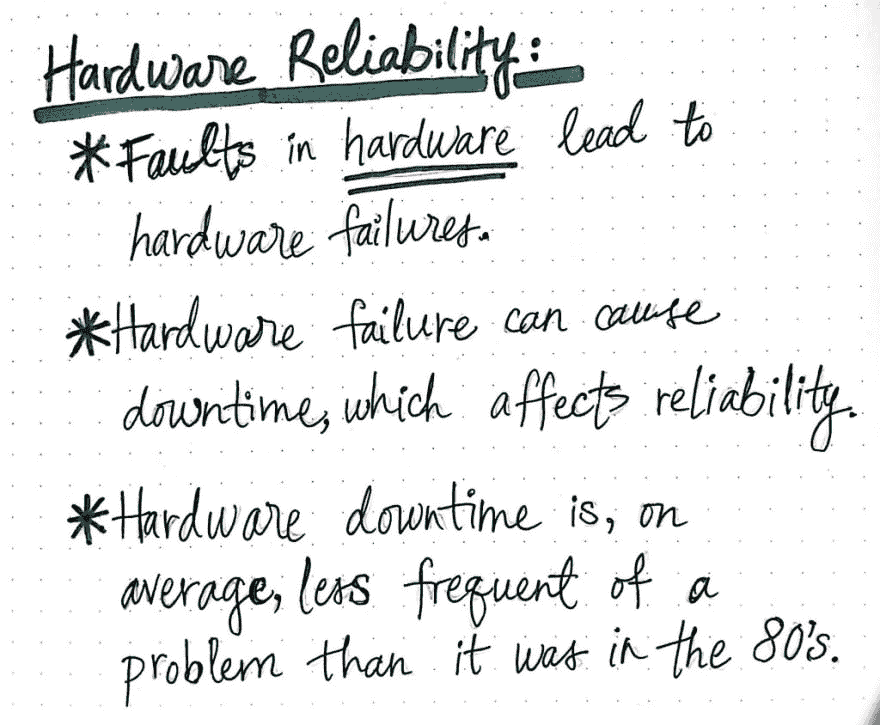 Hardware Reliability:
* Faults in hardware lead to
hardware failures.
* Hardware failure can cause
downtime, which affects reliability.
* Hardware downtime is, on
average, less frequent of a
problem than it was in the 80's.